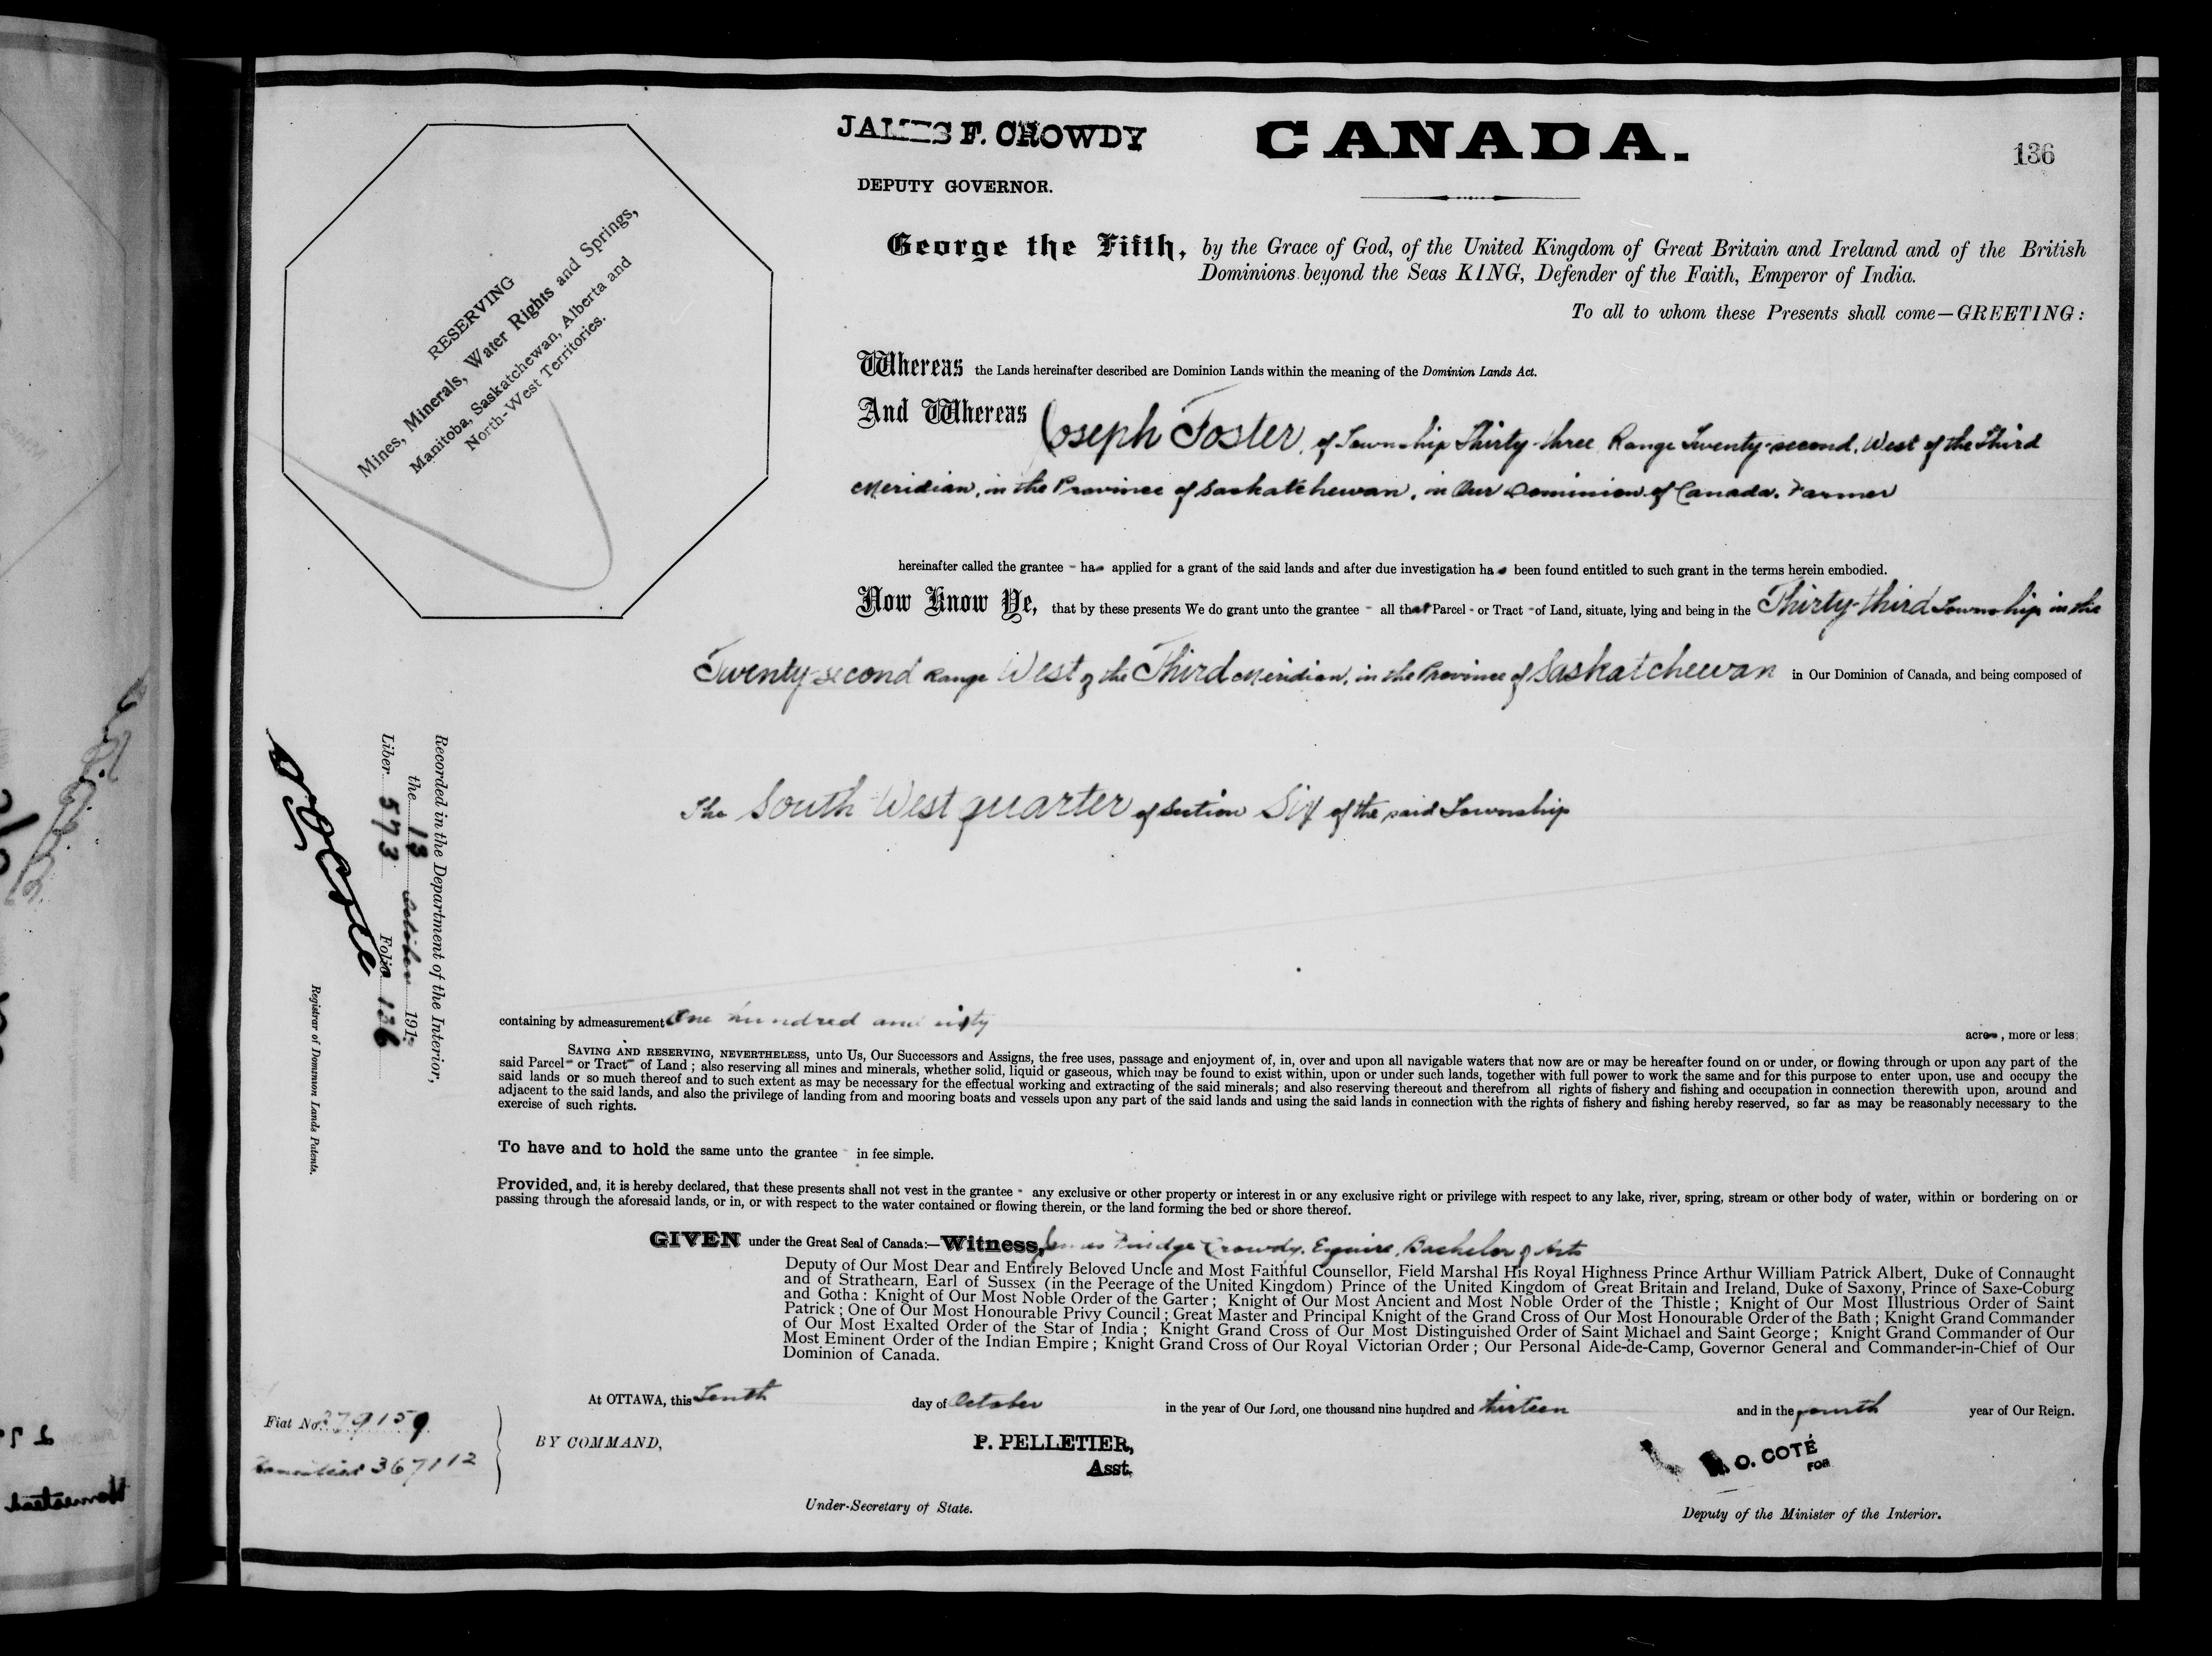 JAMES F. CROWDY
DEPUTY GOVERNOR.
CANADA.
136
RESERVING
Mines, Minerals, Water Rights and Springs,
Manitoba, Saskatchewan, Alberta and
North-West Territories.
George the Fifth, by the Grace of God, of the United Kingdom of Great Britain and Ireland and of the British
Dominions beyond the Seas KING, Defender of the Faith, Emperor of India.
To all to whom these Presents shall come—GREETING:
Whereas the Lands hereinafter described are Dominion Lands within the meaning of the Dominion Lands Act.
And Whereas Joseph Foster, of Township Thirty-three, Range Twenty-second, West of the Third
Meridian, in the Province of Saskatchewan, in Our Dominion of Canada, Farmer
hereinafter called the grantee - has applied for a grant of the said lands and after due investigation has been found entitled to such grant in the terms herein embodied.
Now Know Ye, that by these presents We do grant unto the grantee - all that Parcel - or Tract - of Land, situate, lying and being in the Thirty-third Township in the
Twenty-second Range West of the Third Meridian, in the Province of Saskatchewan in Our Dominion of Canada, and being composed of
The South West quarter of Section Six of the said Township
containing by admeasurement One hundred and sixty acres, more or less;
SAVING AND RESERVING, NEVERTHELESS, unto Us, Our Successors and Assigns, the free uses, passage and enjoyment of, in, over and upon all navigable waters that now are or may be hereafter found on or under, or flowing through or upon any part of the
said Parcel - or Tract - of Land; also reserving all mines and minerals, whether solid, liquid or gaseous, which may be found to exist within, upon or under such lands, together with full power to work the same and for this purpose to enter upon, use and occupy the
said lands or so much thereof and to such extent as may be necessary for the effectual working and extracting of the said minerals; and also reserving thereout and therefrom all rights of fishery and fishing and occupation in connection therewith upon, around and
adjacent to the said lands, and also the privilege of landing from and mooring boats and vessels upon any part of the said lands and using the said lands in connection with the rights of fishery and fishing hereby reserved, so far as may be reasonably necessary to the
exercise of such rights.
To have and to hold the same unto the grantee - in fee simple.
Provided, and, it is hereby declared, that these presents shall not vest in the grantee - any exclusive or other property or interest in or any exclusive right or privilege with respect to any lake, river, spring, stream or other body of water, within or bordering on or
passing through the aforesaid lands, or in, or with respect to the water contained or flowing therein, or the land forming the bed or shore thereof.
GIVEN under the Great Seal of Canada:—Witness, James Fuidge Crowdy, Esquire, Bachelor of Arts
Deputy of Our Most Dear and Entirely Beloved Uncle and Most Faithful Counsellor, Field Marshal His Royal Highness Prince Arthur William Patrick Albert, Duke of Connaught
and of Strathearn, Earl of Sussex (in the Peerage of the United Kingdom) Prince of the United Kingdom of Great Britain and Ireland, Duke of Saxony, Prince of Saxe-Coburg
and Gotha: Knight of Our Most Noble Order of the Garter; Knight of Our Most Ancient and Most Noble Order of the Thistle; Knight of Our Most Illustrious Order of Saint
Patrick; One of Our Most Honourable Privy Council; Great Master and Principal Knight of the Grand Cross of Our Most Honourable Order of the Bath; Knight Grand Commander
of Our Most Exalted Order of the Star of India; Knight Grand Cross of Our Most Distinguished Order of Saint Michael and Saint George; Knight Grand Commander of Our
Most Eminent Order of the Indian Empire; Knight Grand Cross of Our Royal Victorian Order; Our Personal Aide-de-Camp, Governor General and Commander-in-Chief of Our
Dominion of Canada.
At OTTAWA, this Tenth day of October in the year of Our Lord, one thousand nine hundred and thirteen and in the fourth year of Our Reign.
BY COMMAND,
P. PELLETIER,
Asst.
Under-Secretary of State.
N. O. COTÉ
FOR
Deputy of the Minister of the Interior.
Recorded in the Department of the Interior,
the 18 October 191
Liber 573 Folio 136
N O Coté
Registrar of Dominion Lands Patents.
Fiat No. 279159
Homestead 367112
Homestead